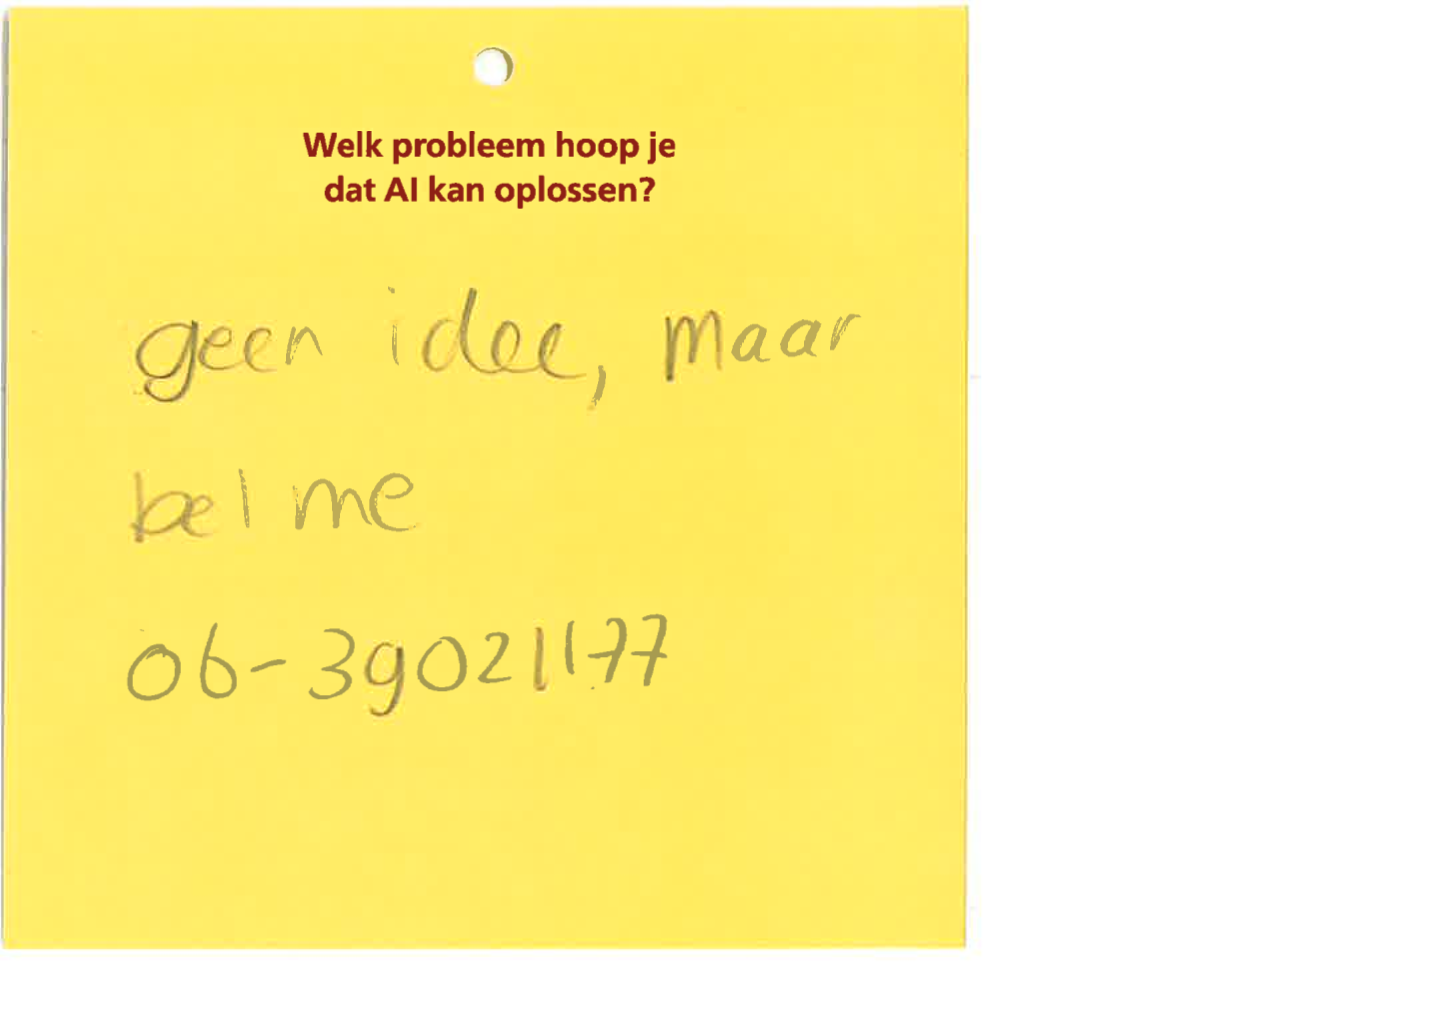 Welk probleem hoop je
dat AI kan oplossen?
geen idee, maar
bel me
06-39021177